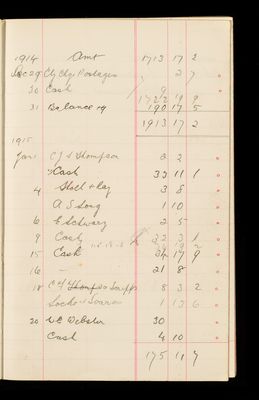 1914 Amt 1713 17 2
Dec 29 Chq Postages 2 7
30 Cash 9
1722 19 9
31 Balance 190 17 5
1913 17 2
1915
Jan 1 C J S Thompson 2 2
Cash 33 11 1
4 3 8
A S Long 1 10
6 E Schwarz 2 5
9 Cash 22 3 1
15 Cash 34 17 9
16 - 21 8
18 8 3 2
1 13 6
20 W E Webster 30
Cash 4 10
175 11 7